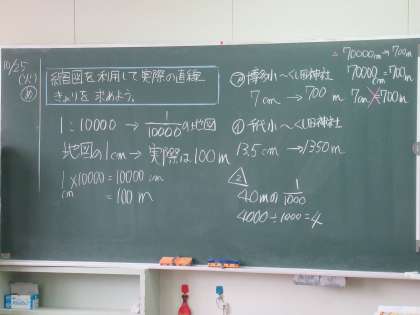 10/25
(火)
め
縮図を利用して実際の直線
きょりを求めよう。
1:10000 → 1/10000の地図
地図の1cm → 実際は100m
1×10000 = 10000 cm
cm
= 100 m
㋐ 博多小〜くし田神社
7cm → 700 m
㋑ 千代小〜くし田神社
13.5 cm → 1350 m
△2
40mの 1/1000
4000÷1000=4
= 70000cm → 700m
70000cm = 700m
7cm = 700m